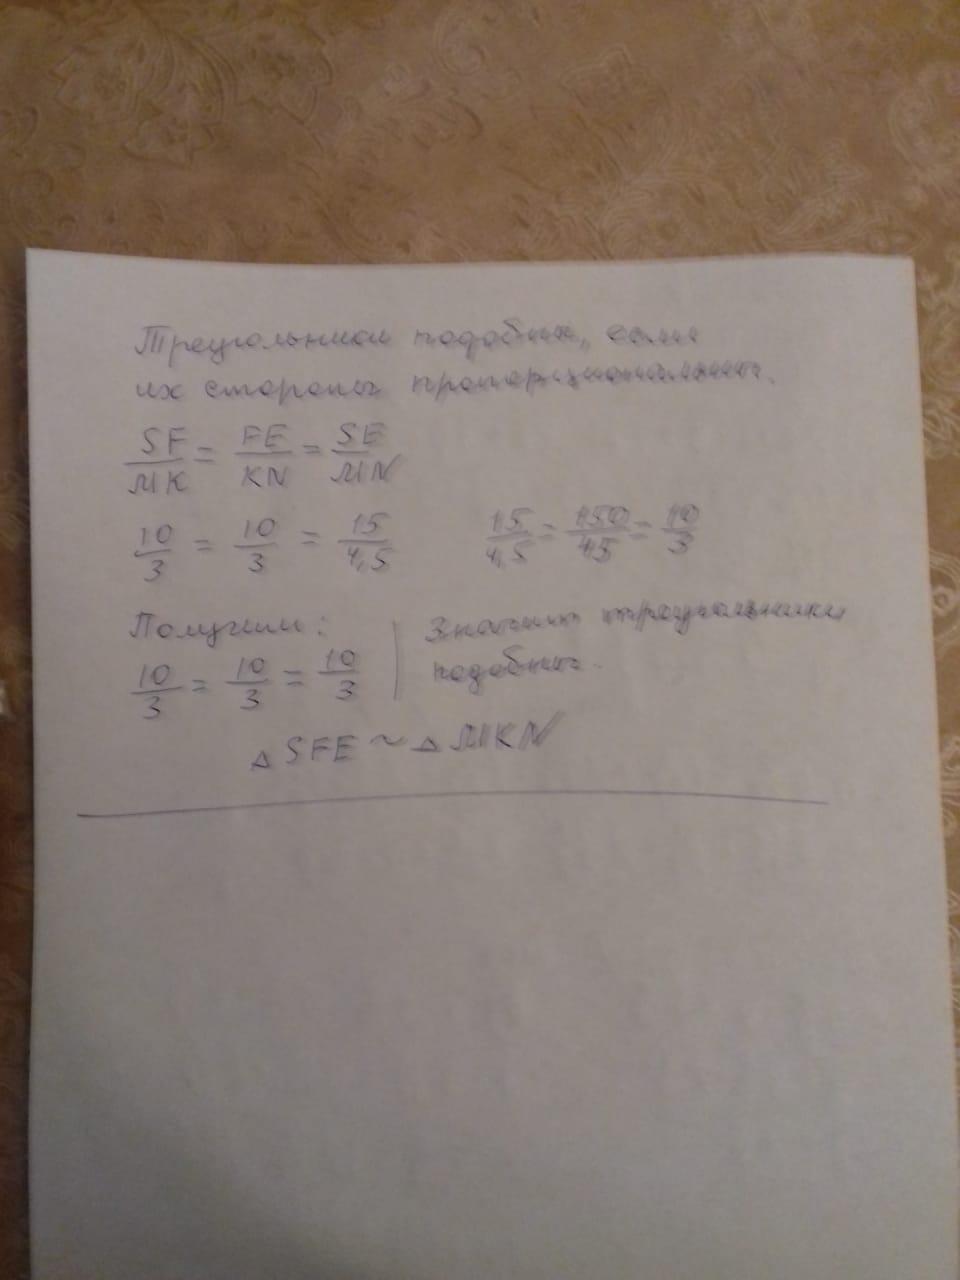 Треугольники подобны, если
их стороны пропорциональны.
SF/MK = FE/KN = SE/MN
10/3 = 10/3 = 15/4,5
15/4,5 = 150/45 = 10/3
Получим:
10/3 = 10/3 = 10/3
Значит треугольники
подобны.
△ SFE ~ △ MKN